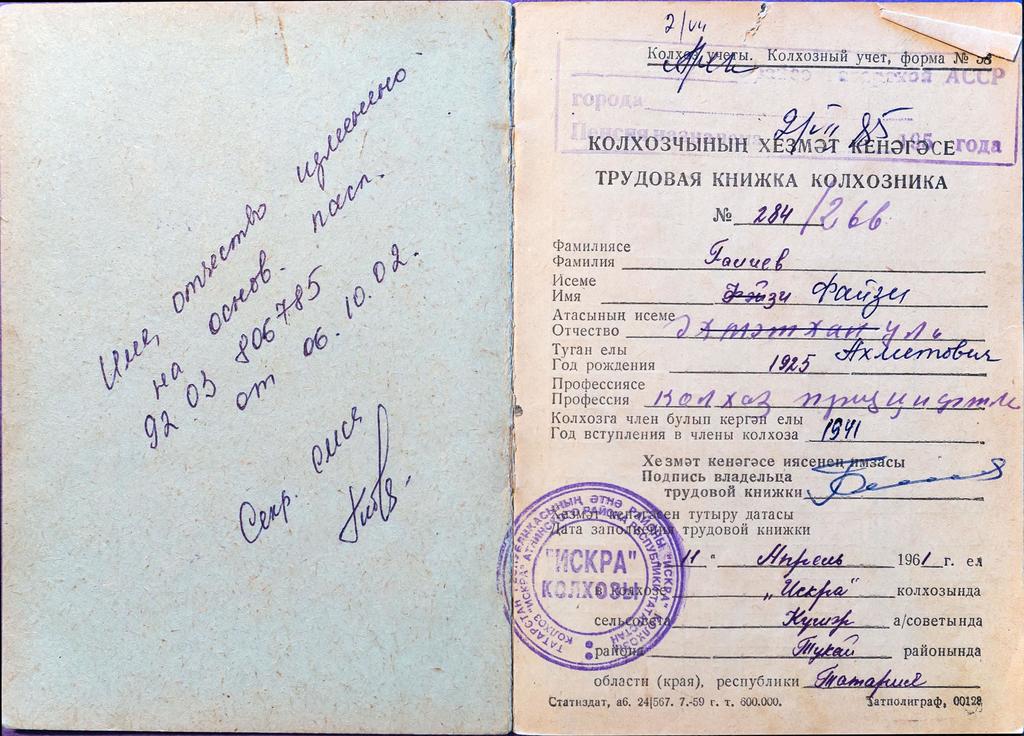 Имя, отчество изменено
на основ. пасп.
92 03 806785
от 06.10.02.
Секр. с/мся
2/VII
Колхоз учеты. Колхозный учет, форма №
АССР
города
Пенсия назначена 2/VII 85 195 года
КОЛХОЗЧЫНЫҢ ХЕЗМӘТ КЕНӘГӘСЕ
ТРУДОВАЯ КНИЖКА КОЛХОЗНИКА
№ 284/266
Фамилиясе
Фамилия Галиев
Исеме
Имя Фәйзи Файзи
Атасының исеме
Отчество Әхмәтхан улы
Туган елы Ахметович
Год рождения 1925
Профессиясе
Профессия колхоз
Колхозга член булып кергән елы
Год вступления в члены колхоза 1941
Хезмәт кенәгәсе иясенең имзасы
Подпись владельца
трудовой книжки
Хезмәт кенәгәсен тутыру датасы
Дата заполнения трудовой книжки
11 " Апрель 1961 г. ел
в колхозе „Искра" колхозында
сельсовета Кушәр а/советында
района Тукай районында
области (края), республики Татария
Статиздат, аб. 24|567. 7.-59 г. т. 600.000. Татполиграф, 00128
ТАТАРСТАН РЕСПУБЛИКАСЫНЫҢ ӘТНӘ РАЙОНЫ "ИСКРА" КОЛХОЗЫ
КОЛХОЗ "ИСКРА" АТНИНСКОГО РАЙОНА РЕСПУБЛИКИ ТАТАРСТАН
"ИСКРА"
КОЛХОЗЫ